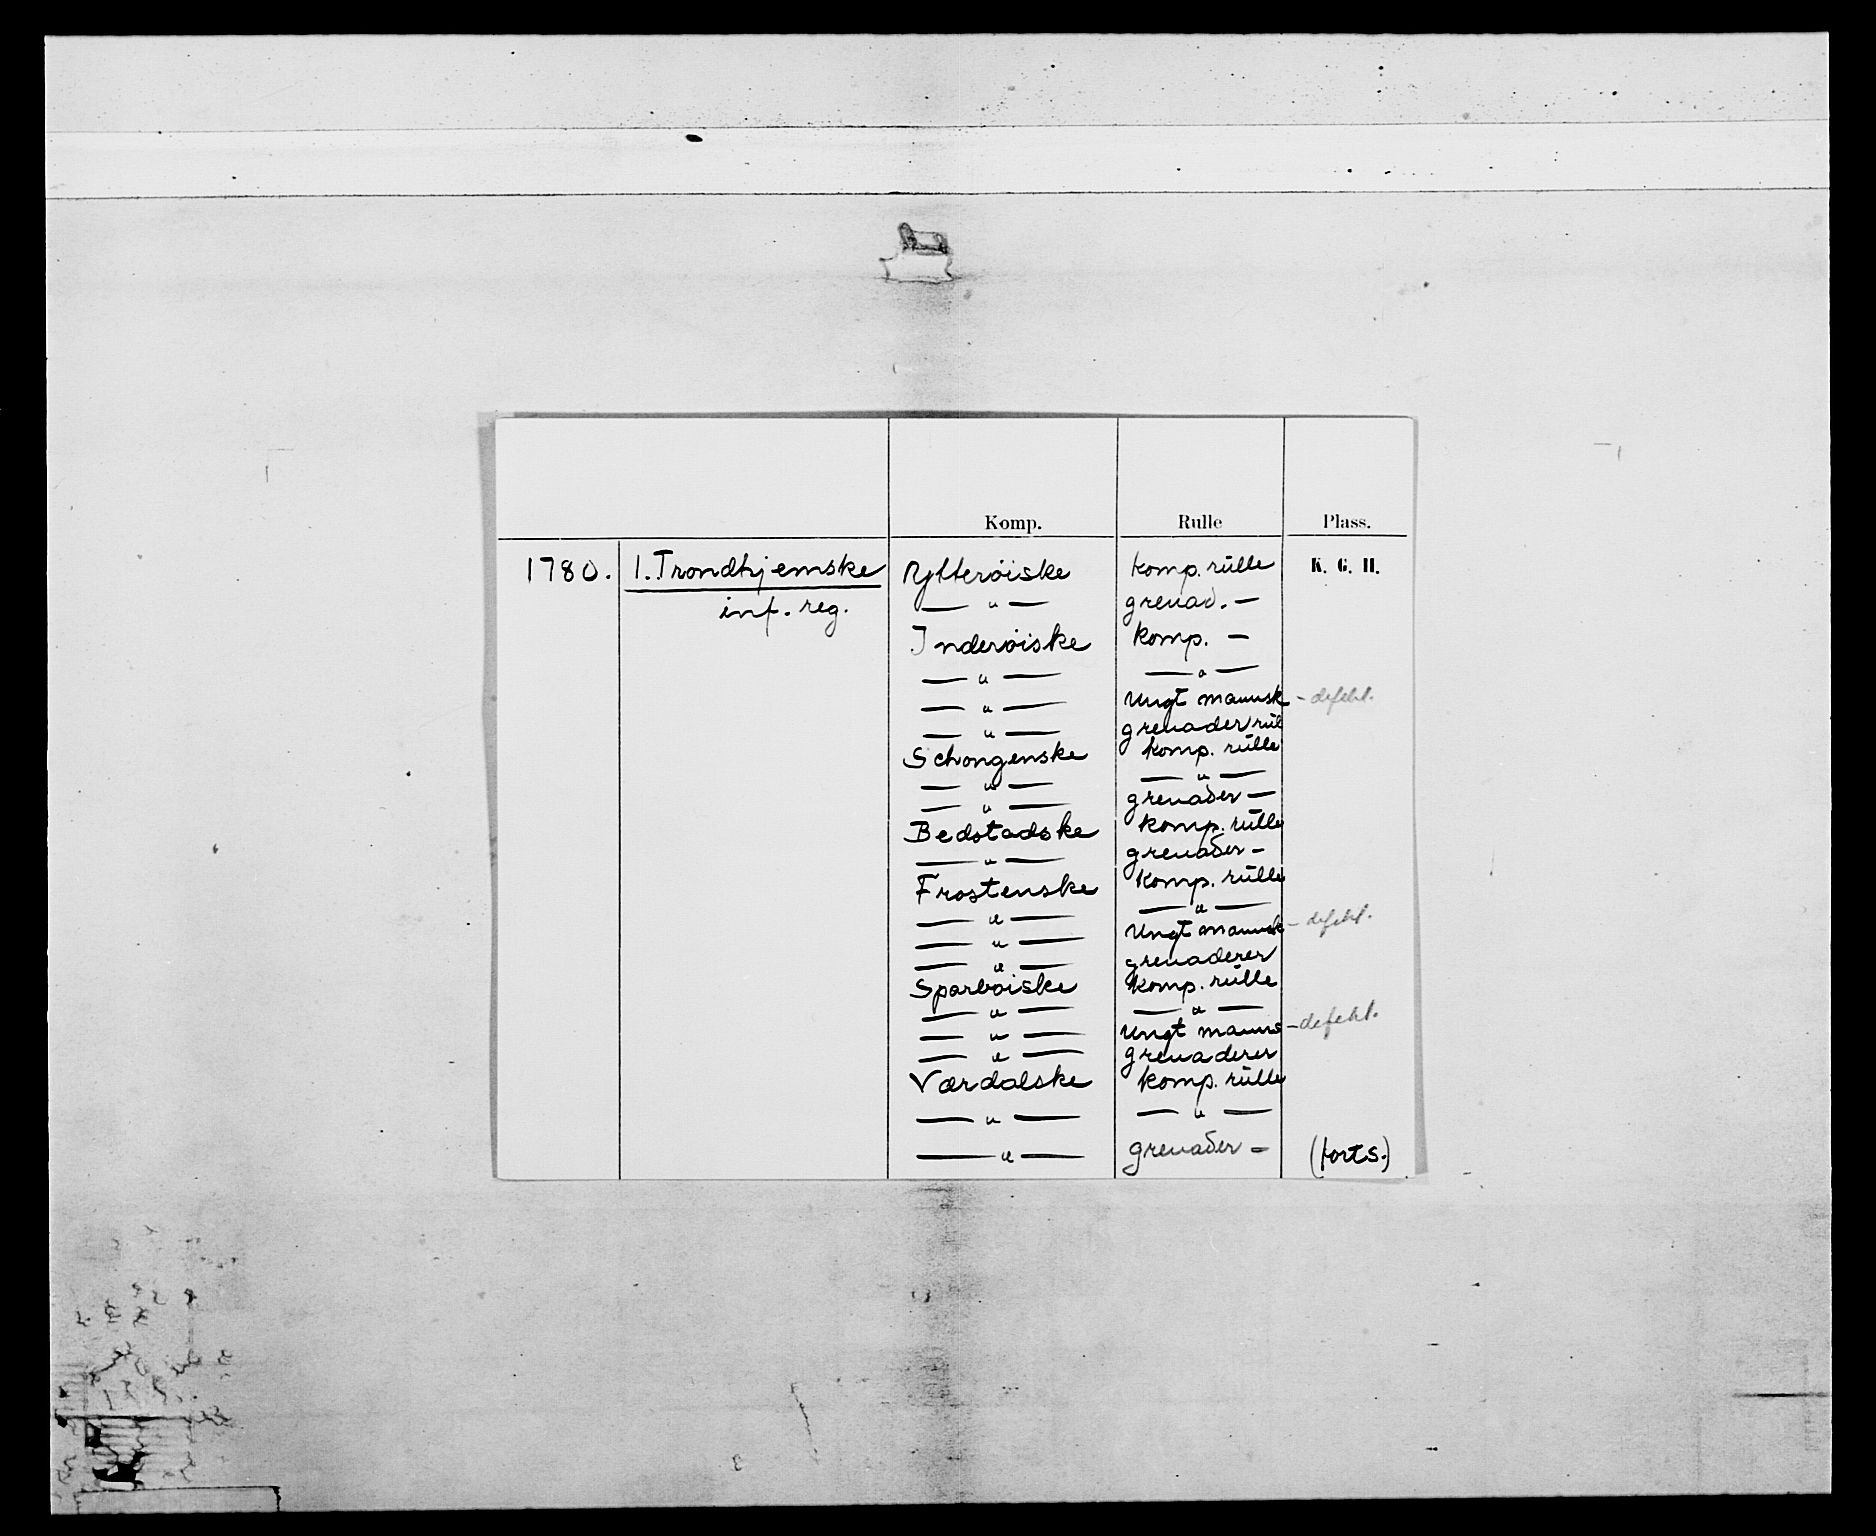 Komp. Rulle Plass.
1780. 1. Trondhjemske Ytterøiske komp. rulle K. G. H.
inf. reg. — " — grenad. —
Inderøiske komp. —
— " — — " —
— " — Ungt mansk — defekt.
— " — grenader rul
Schongenske komp. rulle
— " — — " —
— " — grenader —
Bedstadske komp. rulle
— " — grenader —
Frostenske komp. rulle
— " — — " —
— " — Ungt mansk — defekt.
— " — grenaderer
Sparboiske komp. rulle
— " — — " —
— " — Ungt manns — defekt.
— " — grenaderer
Værdalske komp. rulle
— " — — " —
— " — grenader — (forts.)